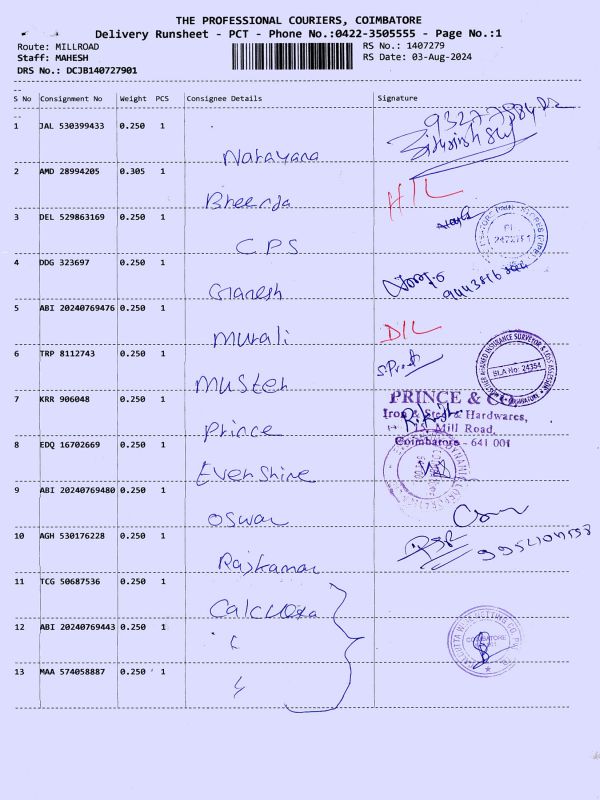 THE PROFESSIONAL COURIERS, COIMBATORE
Delivery Runsheet - PCT - Phone No.:0422-3505555 - Page No.:1
Route: MILLROAD RS No.: 1407279
Staff: MAHESH RS Date: 03-Aug-2024
DRS No.: DCJB140727901
S No Consignment No Weight PCS Consignee Details Signature
1 JAL 530399433 0.250 1
Narayana
2 AMD 28994205 0.305 1
Bheerda
3 DEL 529863169 0.250 1
CPS
4 DDG 323697 0.250 1
Ganesh
5 ABI 20240769476 0.250 1
Murali DIL
6 TRP 8112743 0.250 1
Muster SLA No: 24354
7 KRR 906048 0.250 1 PRINCE & CO
Iron & Steel & Hardwares,
Prince Mill Road,
8 EDQ 16702669 0.250 1 Coimbatore - 641 001
Evershine
9 ABI 20240769480 0.250 1
Oswal
10 AGH 530176228 0.250 1
Rajkamar
11 TCG 50687536 0.250 1
Calcutta
12 ABI 20240769443 0.250 1
"
13 MAA 574058887 0.250 1
"